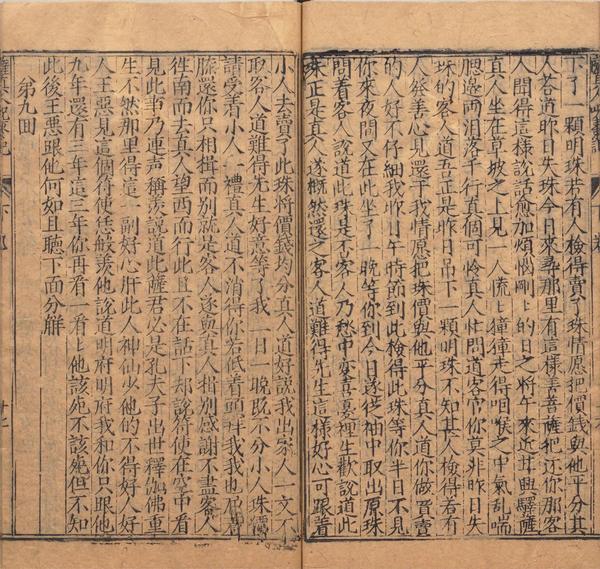 下了一顆明珠若有人檢得賣了珠情愿把價錢與他平分其
人答道昨日失珠今日來尋那里有這樣善菩薩把还你那客
人聞得這樣說話愈加煩惱剛上的日之將午來近甘興驛薩
真人坐在草坡之上見一人慌上撞撞走得咽喉之中氣乱喘
腮邊両泪落千行真個可怜真人忙問道客官你莫非昨日失
珠的客人道吾正是昨日吊下一顆明珠不知甚人檢得若有
人發善心見還乎我情愿把珠價與他平分真人道你做買賣
的人好不仔細我昨日午時節到此檢得此珠等你半日不見
你來夜間又在此坐了一晚等你到今日遂從袖中取出原珠
問着客人說道此珠是不客人乃愁中变喜憂裡生歡說道此
珠正是真人遂慨然還之客人道難得先生這樣好心可跟着
小人去賣了此珠將價錢均分真人道好說我出家人一文不
取客人道難得先生好意等了我一日一晚既不分小人珠價
請受善小人一禮真人道不消得你若低着頭拜我我也屈着
膝還你只相揖而別就是客人遂與真人揖別感謝不盡客人
徃南而去真人望西而行此且不在話下却說符使在空中看
見此事乃連声稱羡說道此薩君必是孔夫子出世釋伽佛重
生不然那里得這一副好心肝此人神仙少他的不得好人好
人王惡見這個符使恁般羨他說道明府明府我和你只跟他
九年還有三年你再看一看上他該死不該死但不知
此後王惡跟他何如且聽下面分觧
第九回